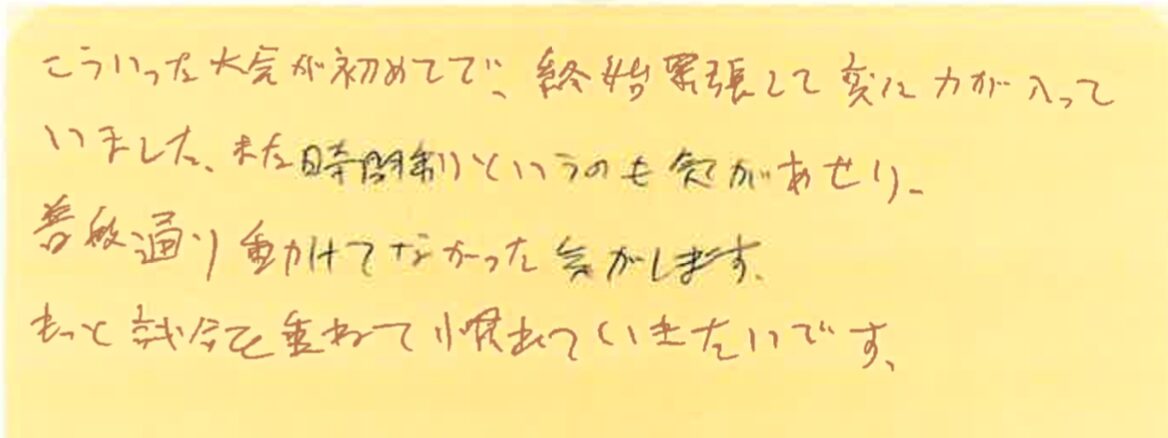 こういった大会が初めてで、終始緊張して変に力が入って
いました。また時間制というのも気があせり、
普段通り動けてなかった気がします。
もっと試合を重ねて慣れていきたいです。